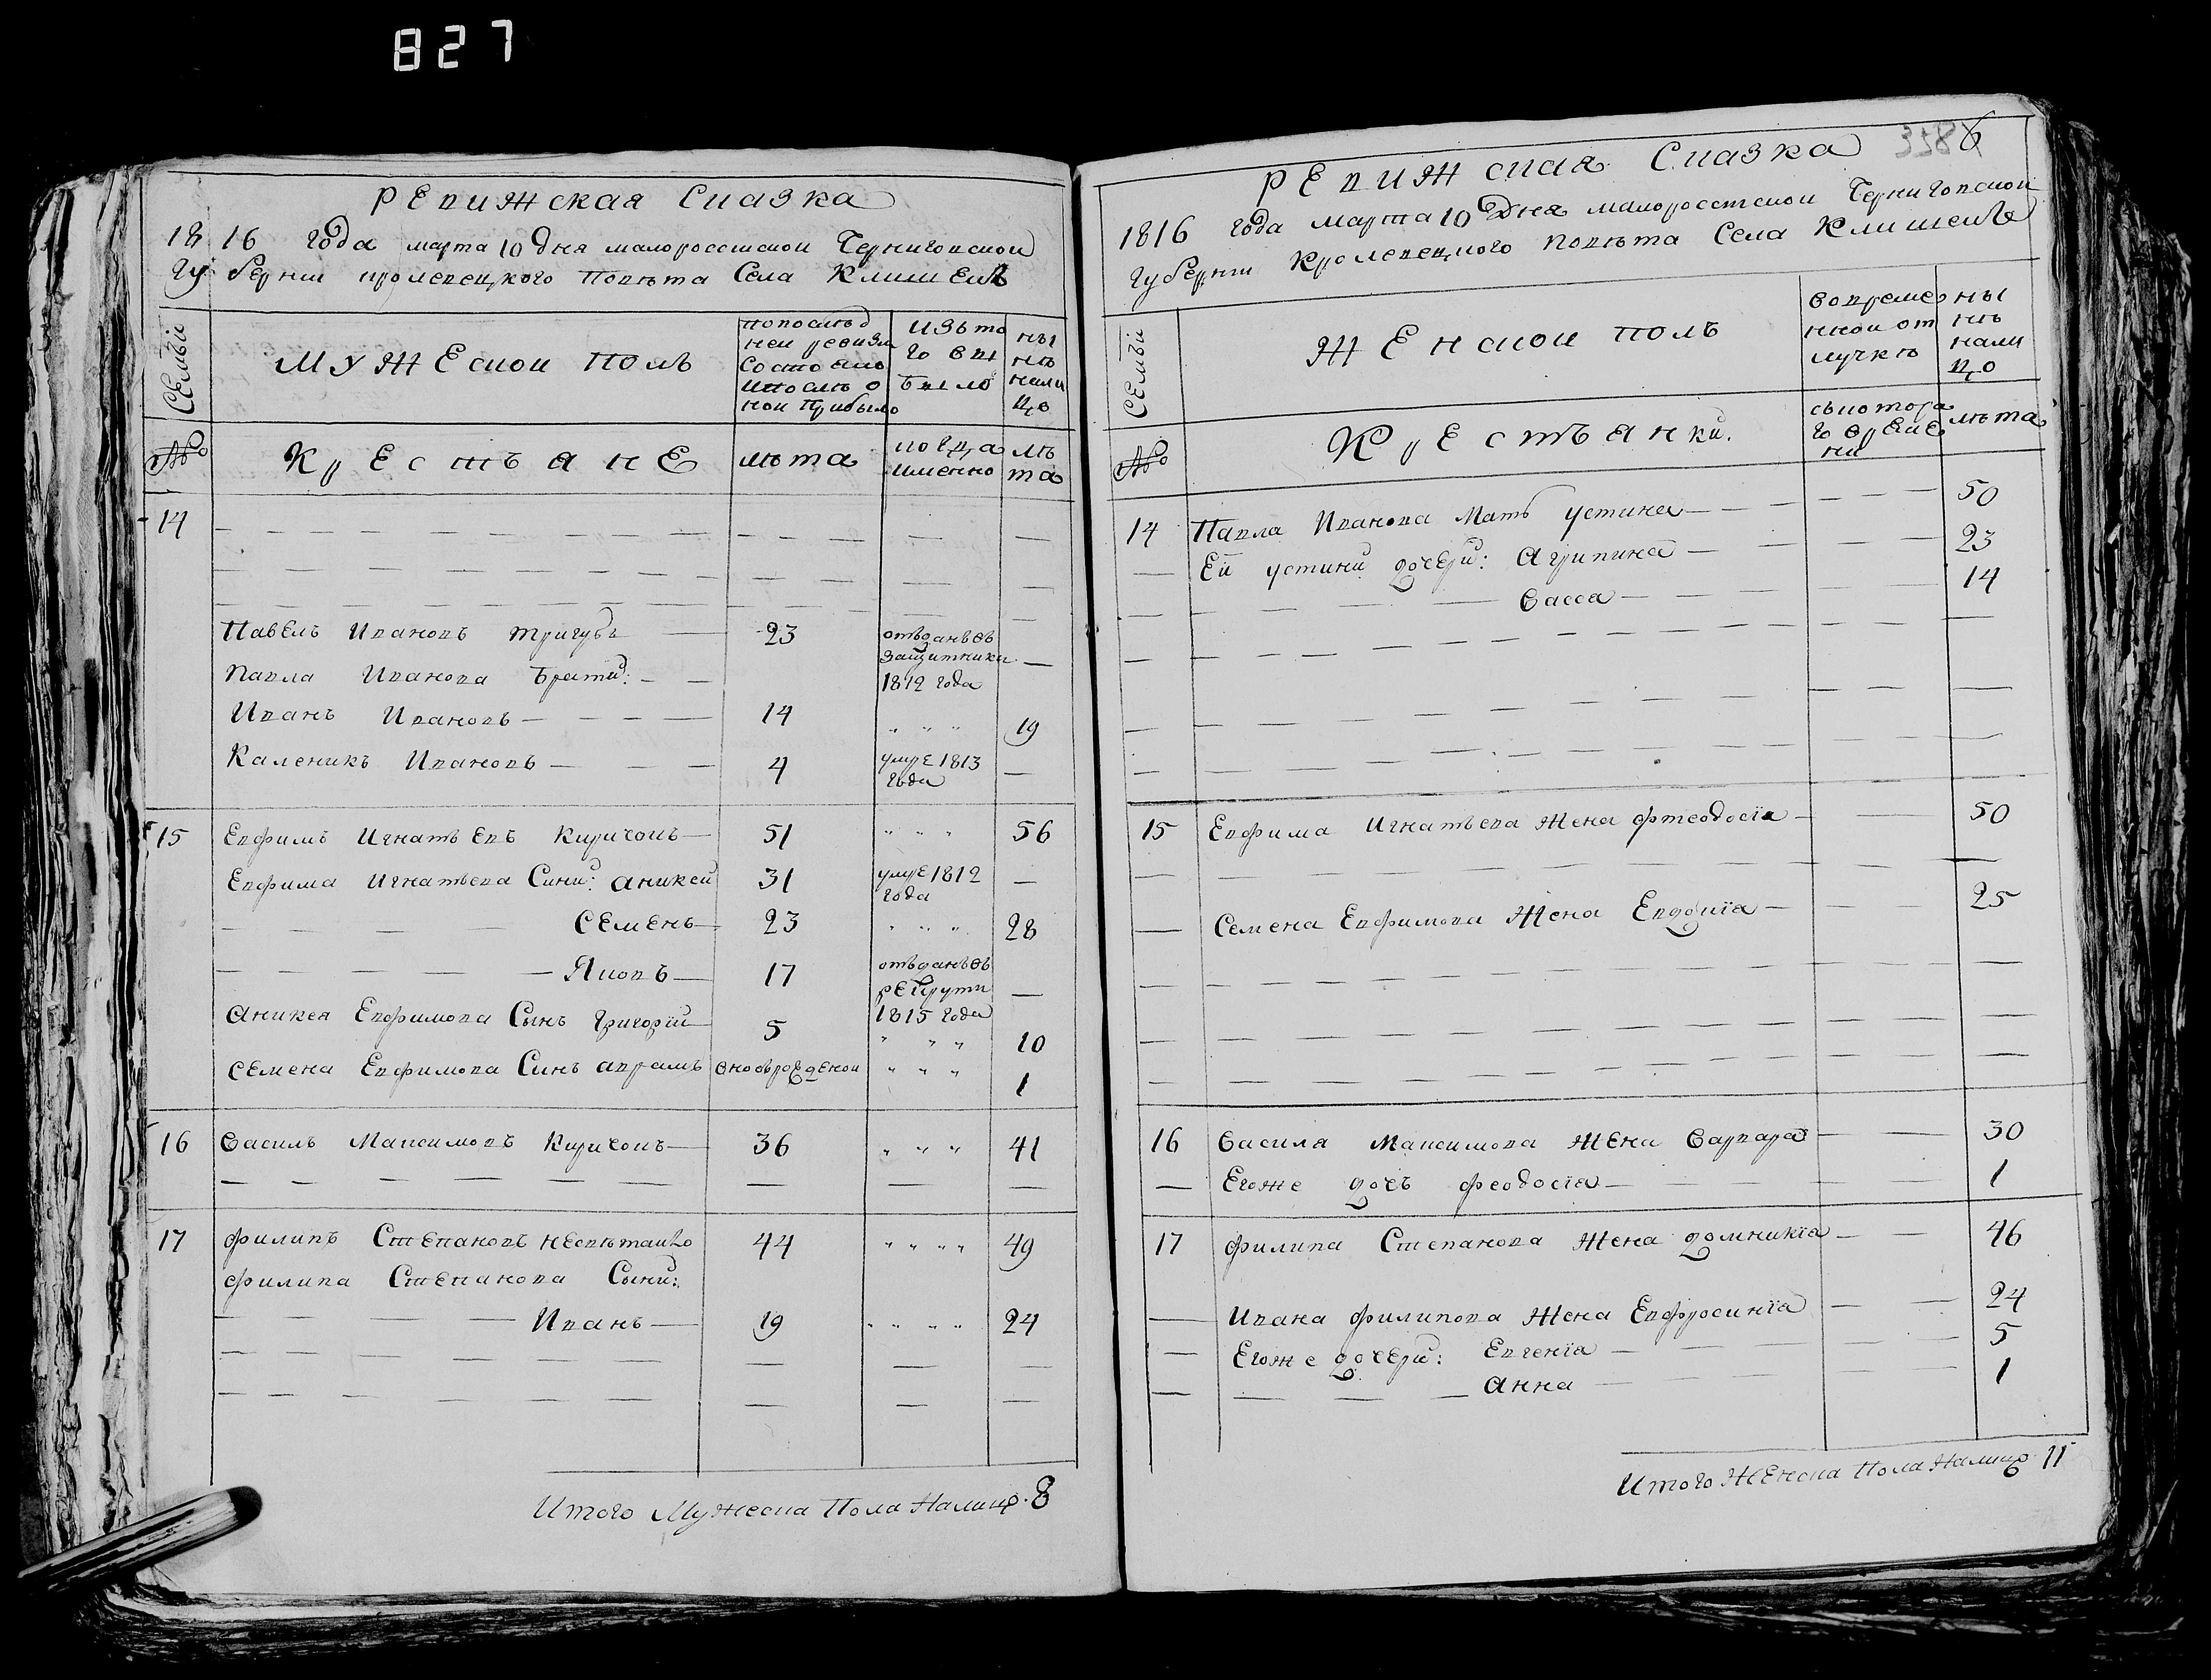 827
РЕВИЖСКАЯ Сказка
1816 года марта 10 дня малоросснской Черниговской
Губернии кролевецкого Повѣта Села Клишекъ
СЕМЬИ
МУЖЕСКОИ ПОЛЪ
попослѣд
неи ревизи
Состояло
ипослѣ о
нои прибыло
ИЗЪ то
го вы
было
НЫ
нѣ
нали
цо
№
КрЕстЬянЕ
лѣта
когда
именно
лѣ
та
14
Павелъ Ивановъ тригубъ 23 отъданъвъ
защитники
1812 года
Павла Иванова братти:
Иванъ Ивановъ 14 " " " 19
Каленикъ Ивановъ 4 умрЕ 1813
года
15 Евфимъ Игнатьевъ Киричокъ 51 " " " 56
Евфима Игнатьева Сини: аникей 31 умрЕ 1812
года
СЕменъ 23 " " " 28
Яковъ 17 отъданъвъ
рЕкрути
1815 года
аникея Евфимова Сынъ Григорій 5 " " " 10
сЕмена Евфимова Синъ аврамъ вновърожденои " " " 1
16 Василь Максимовъ Киричокъ 36 " " " 41
17 филипъ Степановъ несвѣтаило 44 " " " " 49
филипа Степанова Сыни:
Иванъ 19 " " " " 24
Итого Мужеска Пола Налицо. 8
3586
РЕВИЖСКАЯ Сказка
1816 года марта 10 Дня малоросстской Черниговской
Губернии Кролевецкого повѣта Села Клишекъ
СЕМЬИ
ЖЕНСКОИ ПОЛЪ
вовреме
ннои от
лучкѣ
ны
нѣ
нали
цо
№
КрЕстьянки.
съкотора
го врЕме
ни
лѣта
14 Павла Иванова Мать устина 50
Ей устини дочЕри: Агрипина 23
Васса 14
15 Евфима Игнатьева Жена фтеодосіа 50
Семена Евфимова Жена Евдокіа 25
16 Василя Максимова ЖЕна Варвара 30
Егоже дочъ феодосіа 1
17 филипа Степанова Жена домникіа 46
Ивана филипова Жена Евфросинїа 24
Егоже дочЕри: Евгенїа 5
Анна 1
Итого ЖЕнска Пола Налицо 11